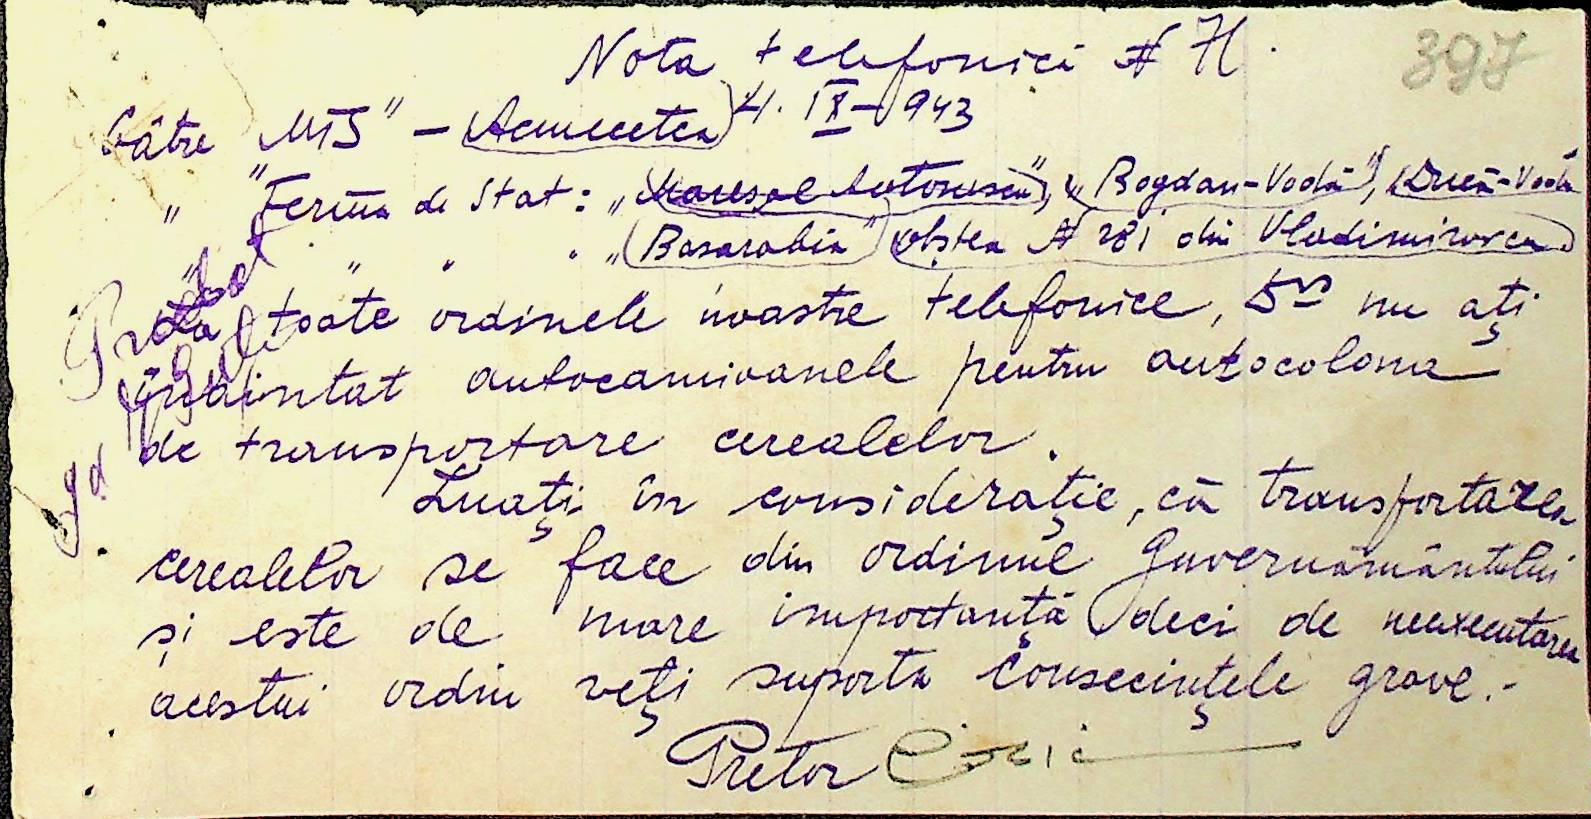 Nota telefonică № 71.
397
4. IX - 943
Către „MTS" - Acmecetca
" Ferma de Stat: „Mareșal Antonescu", „Bogdan-Vodă", „Duca-Vodă
" " " " „Basarabia" obștea № 281 din Vladimirovca
La toate ordinele noastre telefonice, Dvs nu ați
înaintat autocamioanele pentru autocolona
de transportare cerealelor.
Luați în considerație, că transportarea
cerealelor se face din ordinul guvernământului
și este de mare importanță deci de neexecutarea
acestui ordin veți suporta consecințele grave.-
Pretor